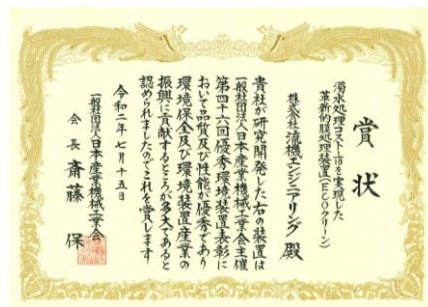 賞状
濁水処理コスト を実現した
革新的膜処理装置(ECOクリーン)
株式会社流機エンジニアリング 殿
貴社が研究開発した右の装置は
一般社団法人日本産業機械工業会主催
第四十六回優秀環境装置表彰に
おいて品質及び性能が優秀であり
環境保全及び環境装置産業の
振興に貢献するところが多大であると
認められましたのでこれを賞します
令和二年七月十五日
一般社団法人日本産業機械工業会
会長 斎藤 保